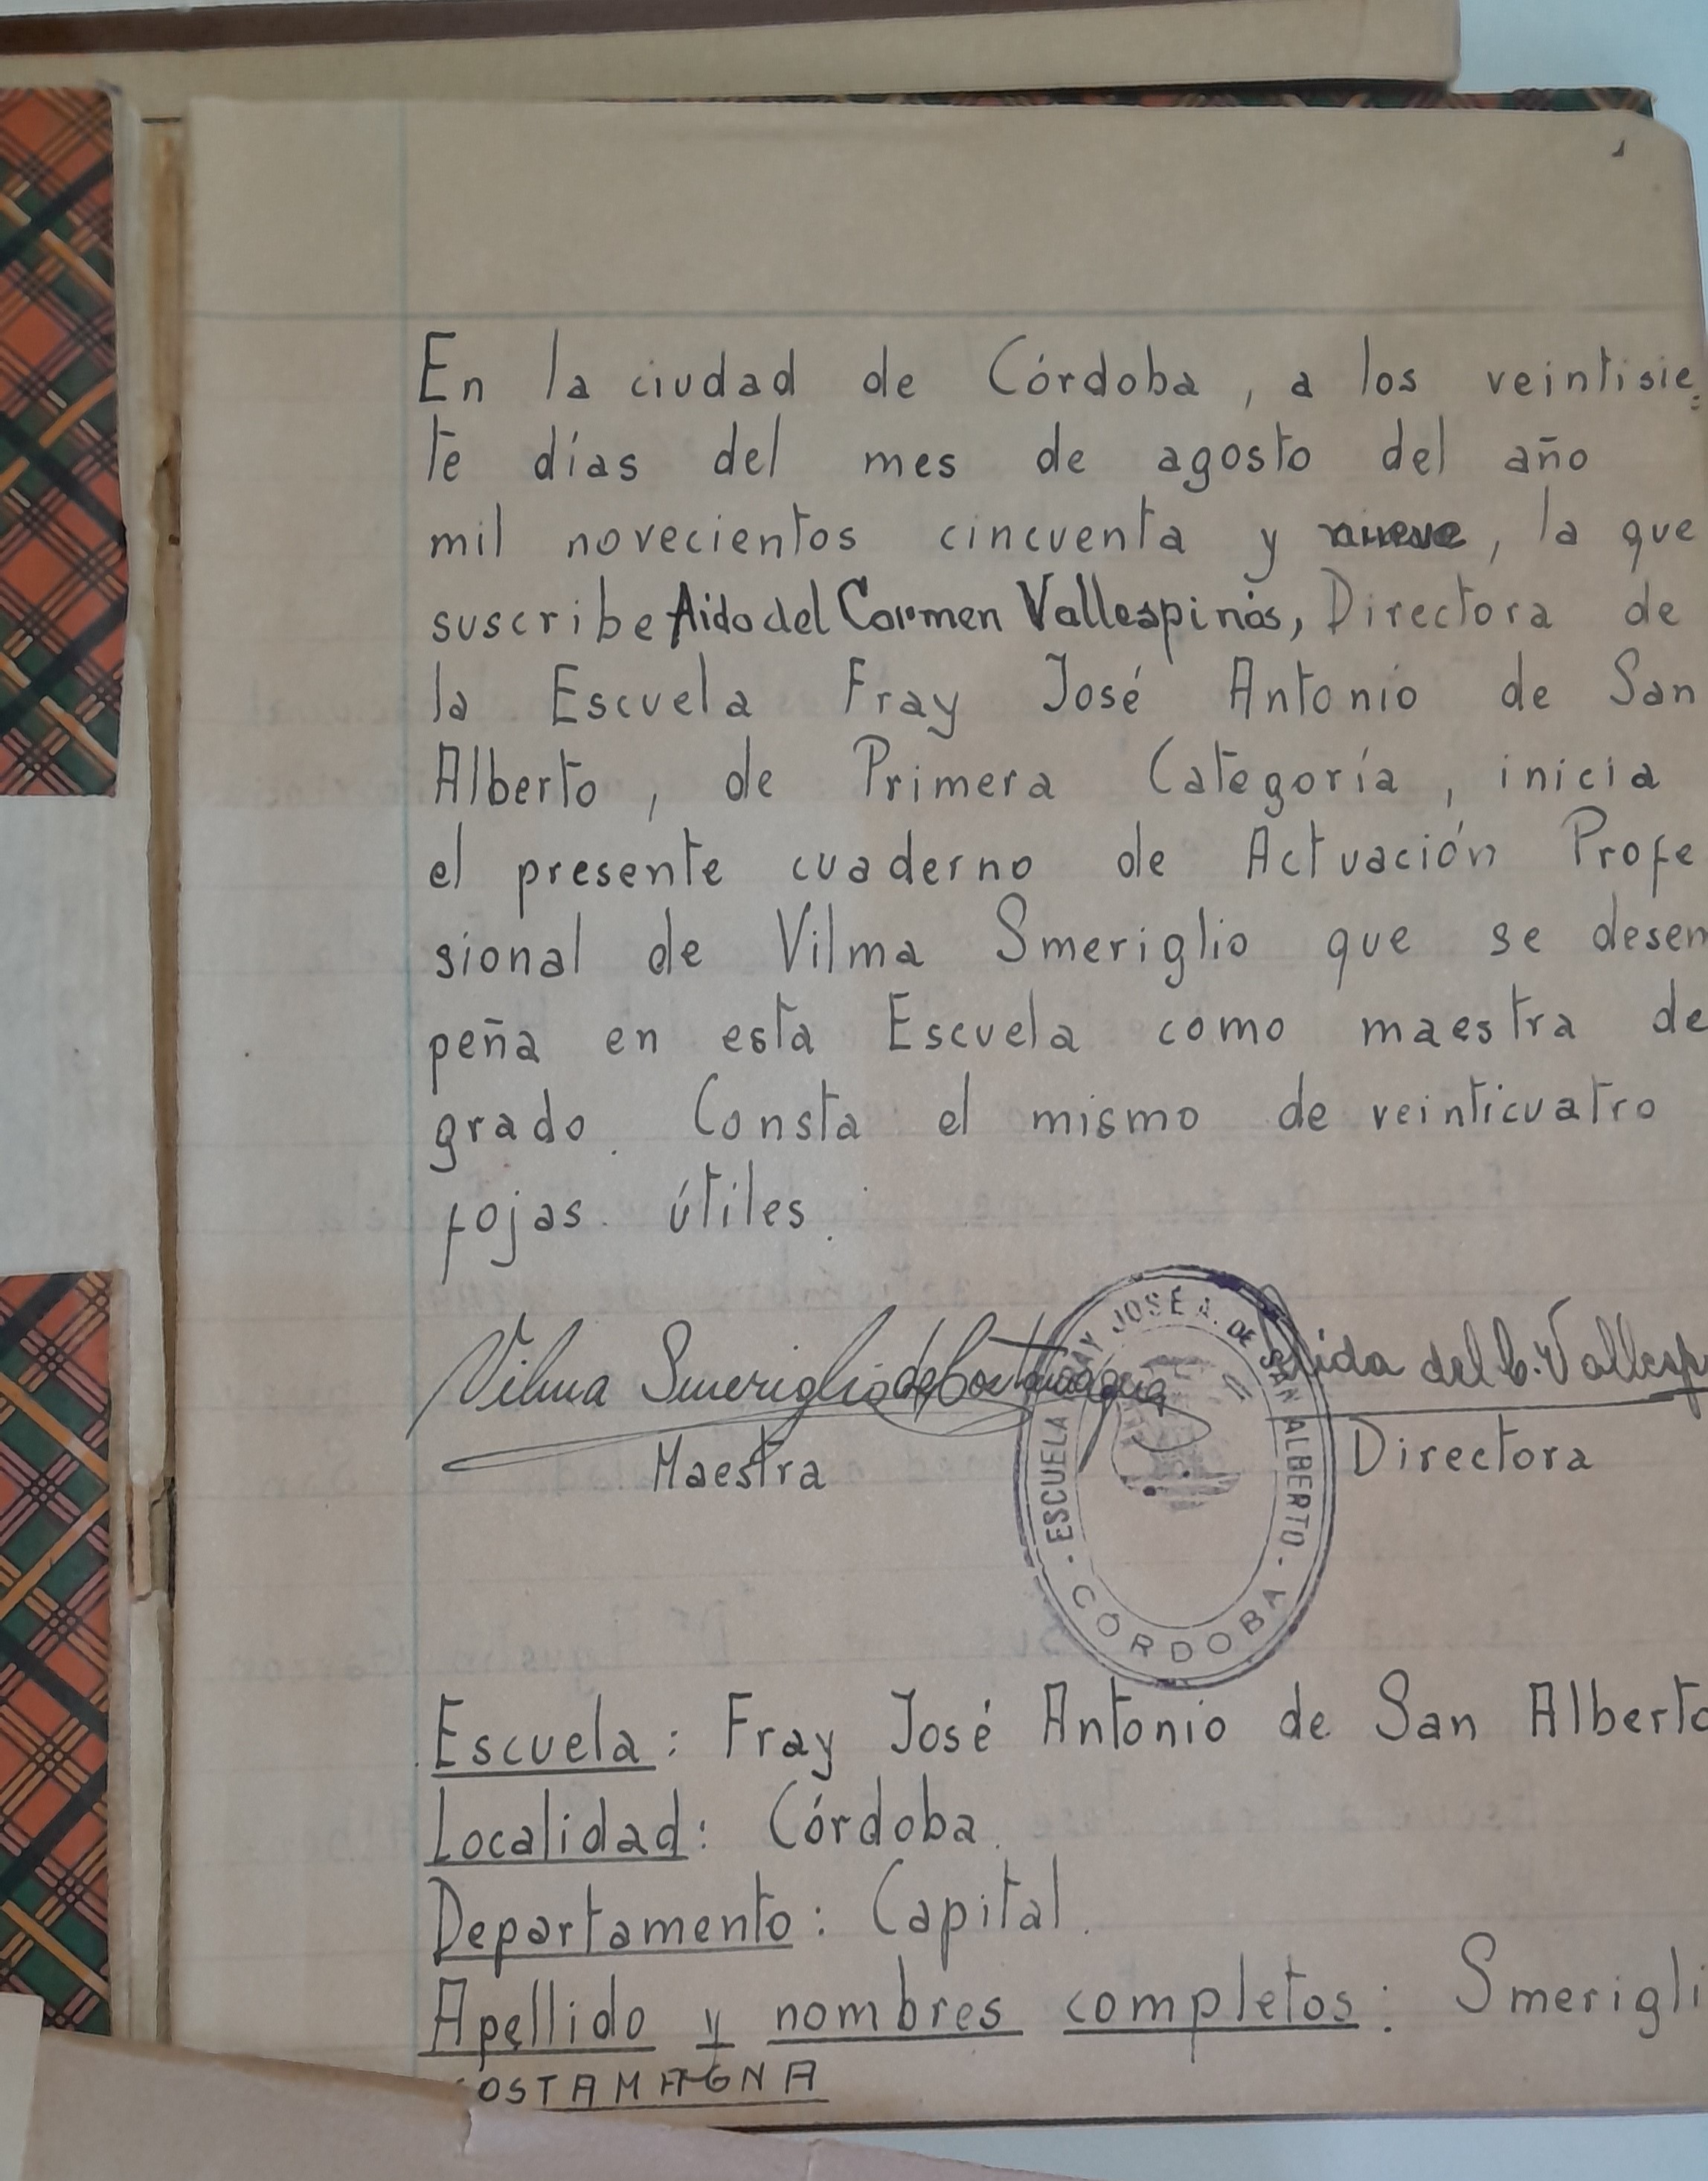 En la ciudad de Córdoba, a los veintisie=
te días del mes de agosto del año
mil novecientos cincuenta y nueve, la que
suscribe Aida del Carmen Vallespinos, Directora de
la Escuela Fray José Antonio de San
Alberto, de Primera Categoría, inicia
el presente cuaderno de Actuación Profe
sional de Vilma Smeriglio que se desem
peña en esta Escuela como maestra de
grado. Consta el mismo de veinticuatro
fojas útiles.
Vilma Smeriglio de Costamagna
Aida del C. Vallesp
Maestra
Directora
ESCUELA FRAY JOSÉ A. DE SAN ALBERTO - CÓRDOBA -
Escuela: Fray José Antonio de San Alberto
Localidad: Córdoba.
Departamento: Capital.
Apellido y nombres completos: Smerigli
OSTAMAGNA